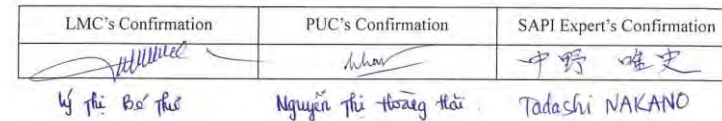 LMC's Confirmation PUC's Confirmation SAPI Expert's Confirmation
中野 唯史
Lý Thị Bé Thơ Nguyễn Thị Hoàng Hải Tadashi NAKANO